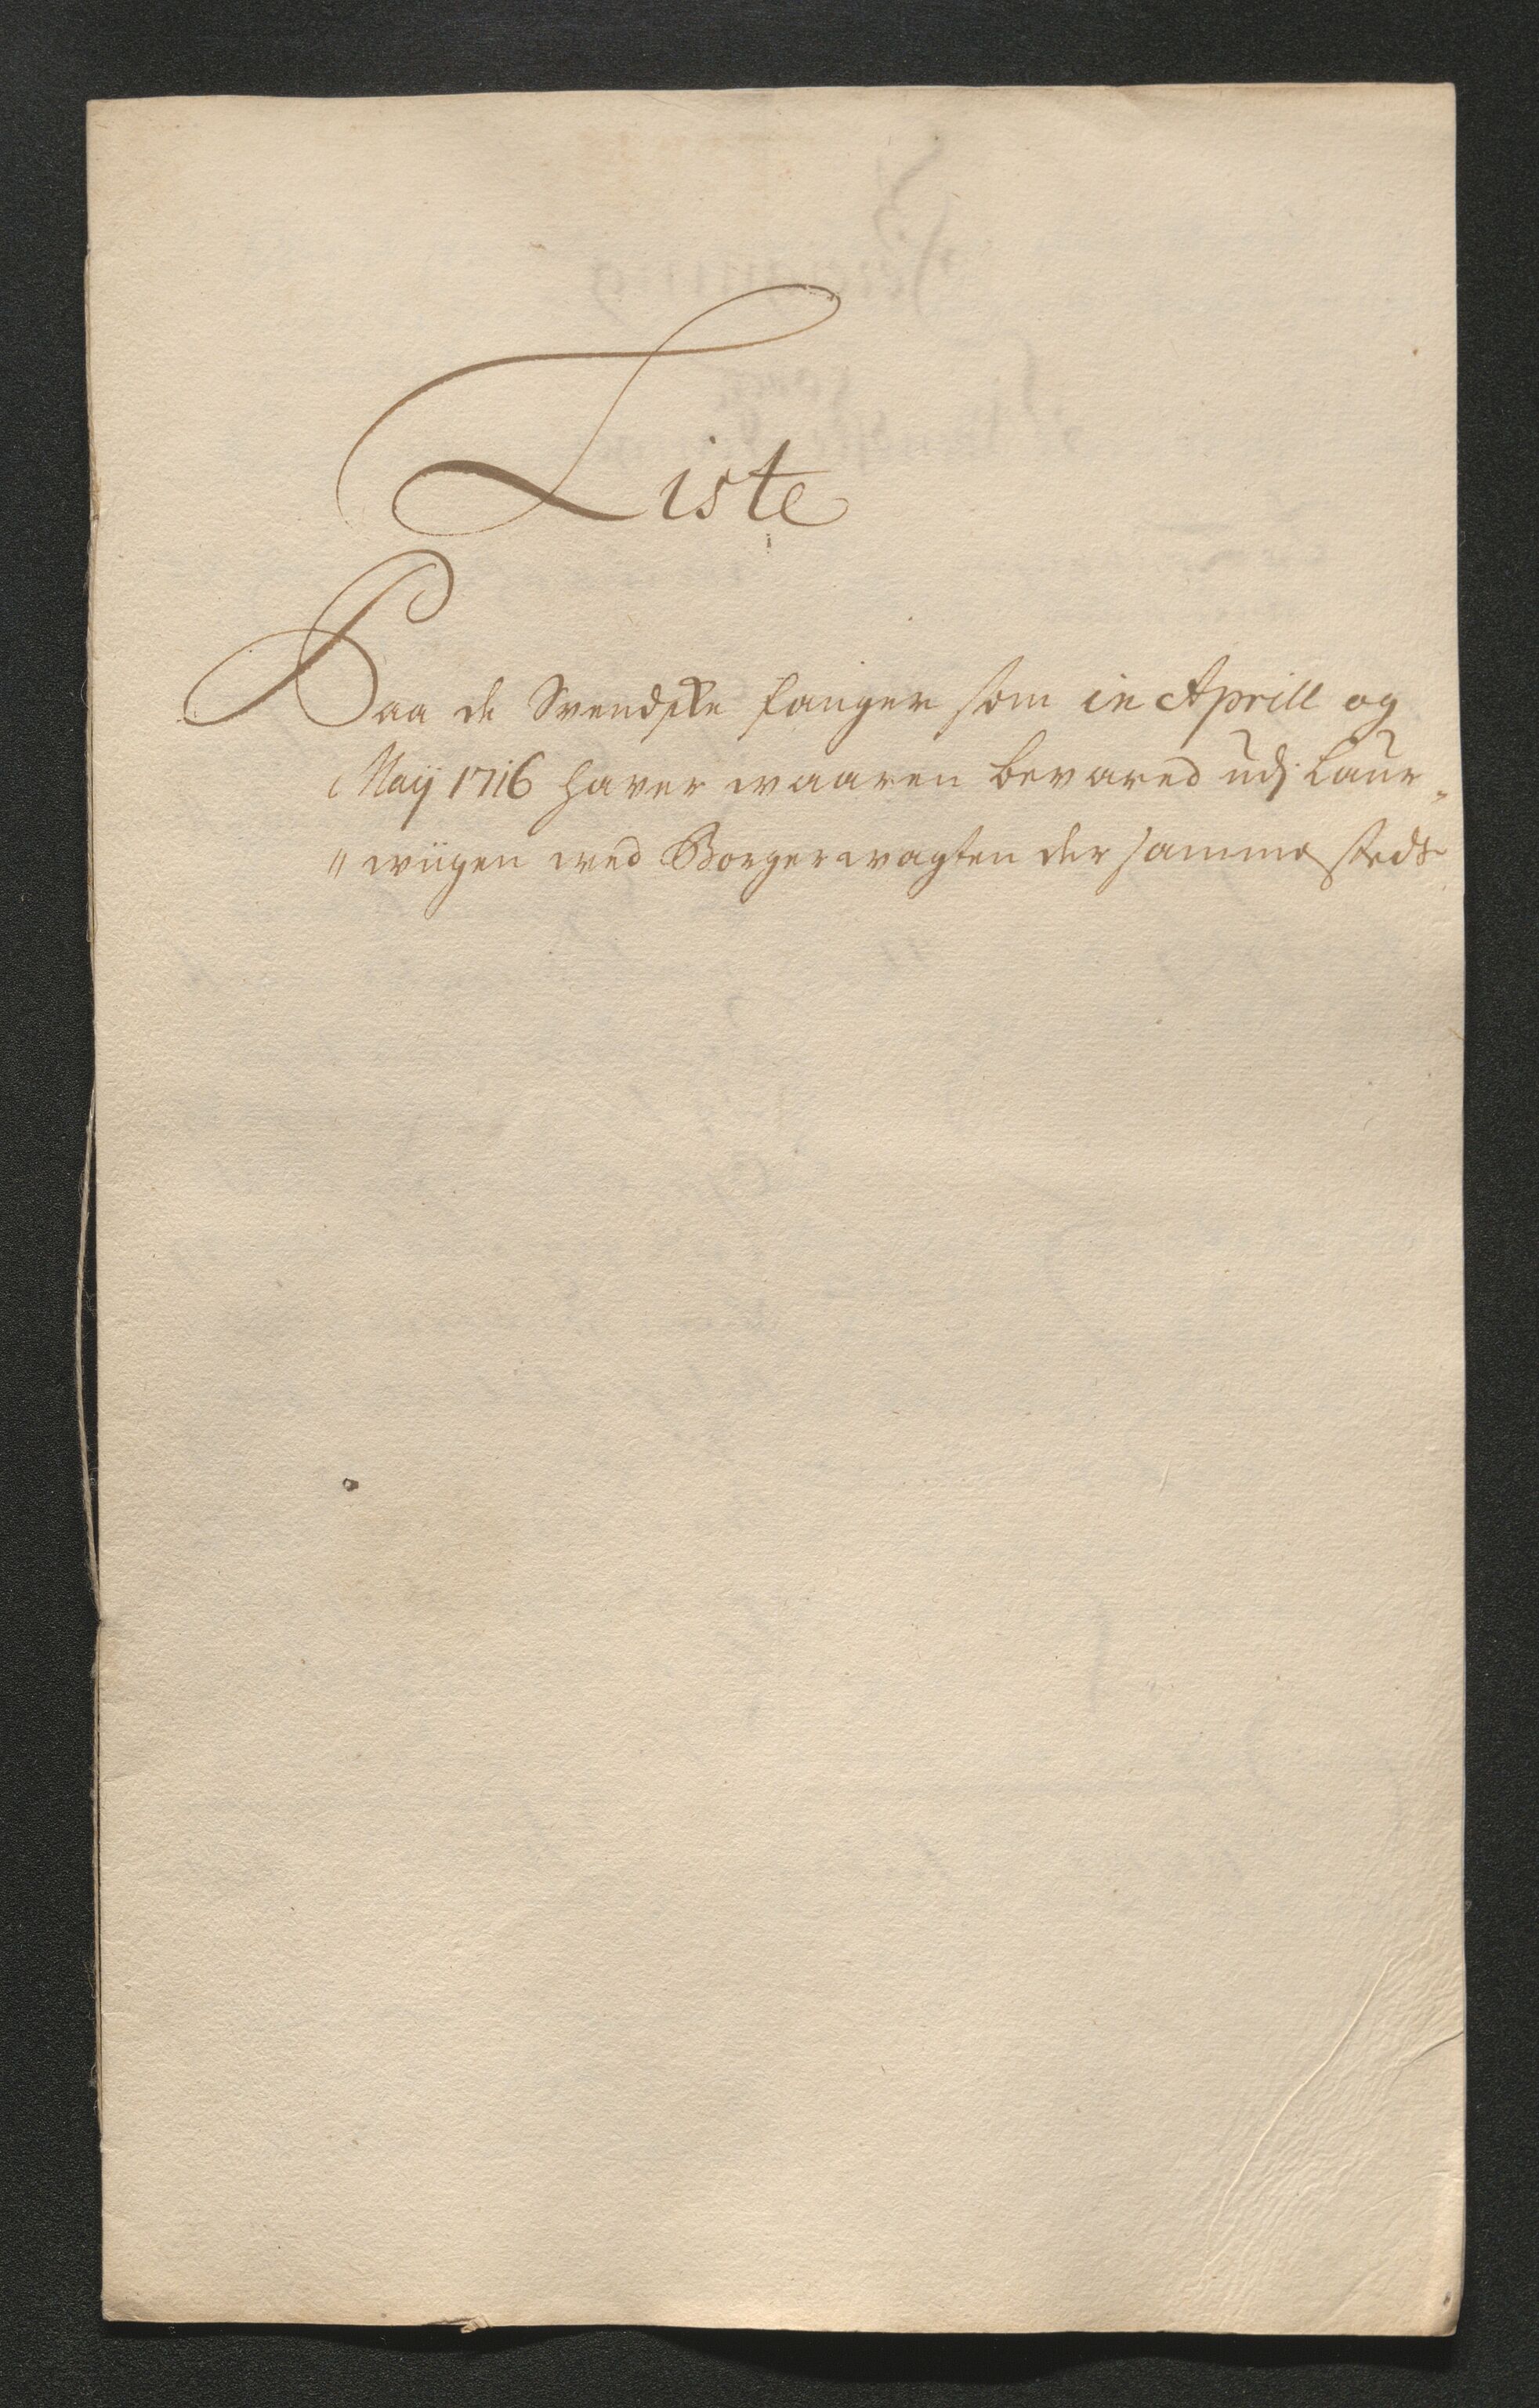 Liste
Paa de Svendske fanger som in Aprill og
Maij 1716 haver waaren bevared udj Laur„
„wiigen ved Borger wagten der sammesteds